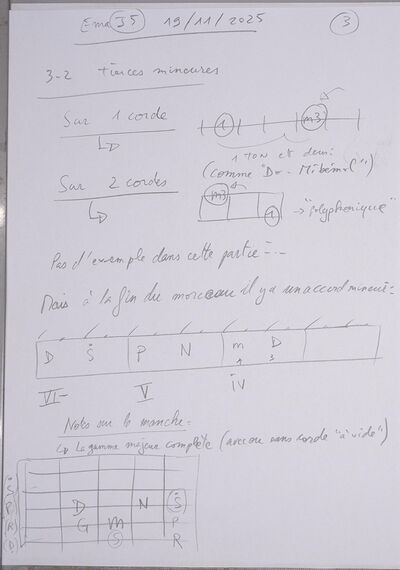 Ema J5 19/11/2025 3
3-2 tierces mineures
Sur 1 corde
1 m3
1 TON et demi
(comme "Do - Mi bémol")
Sur 2 cordes
m3
1
→ "polyphonique"
Pas d'exemple dans cette partie ...
Mais à la fin du morceau il y a un accord mineur:
D S P N m D
3
VI- V IV
Notes sur le manche:
↳ La gamme majeur complète (avec ou sans corde "à vide")
D N S
G m P
S R
S
P
R
D